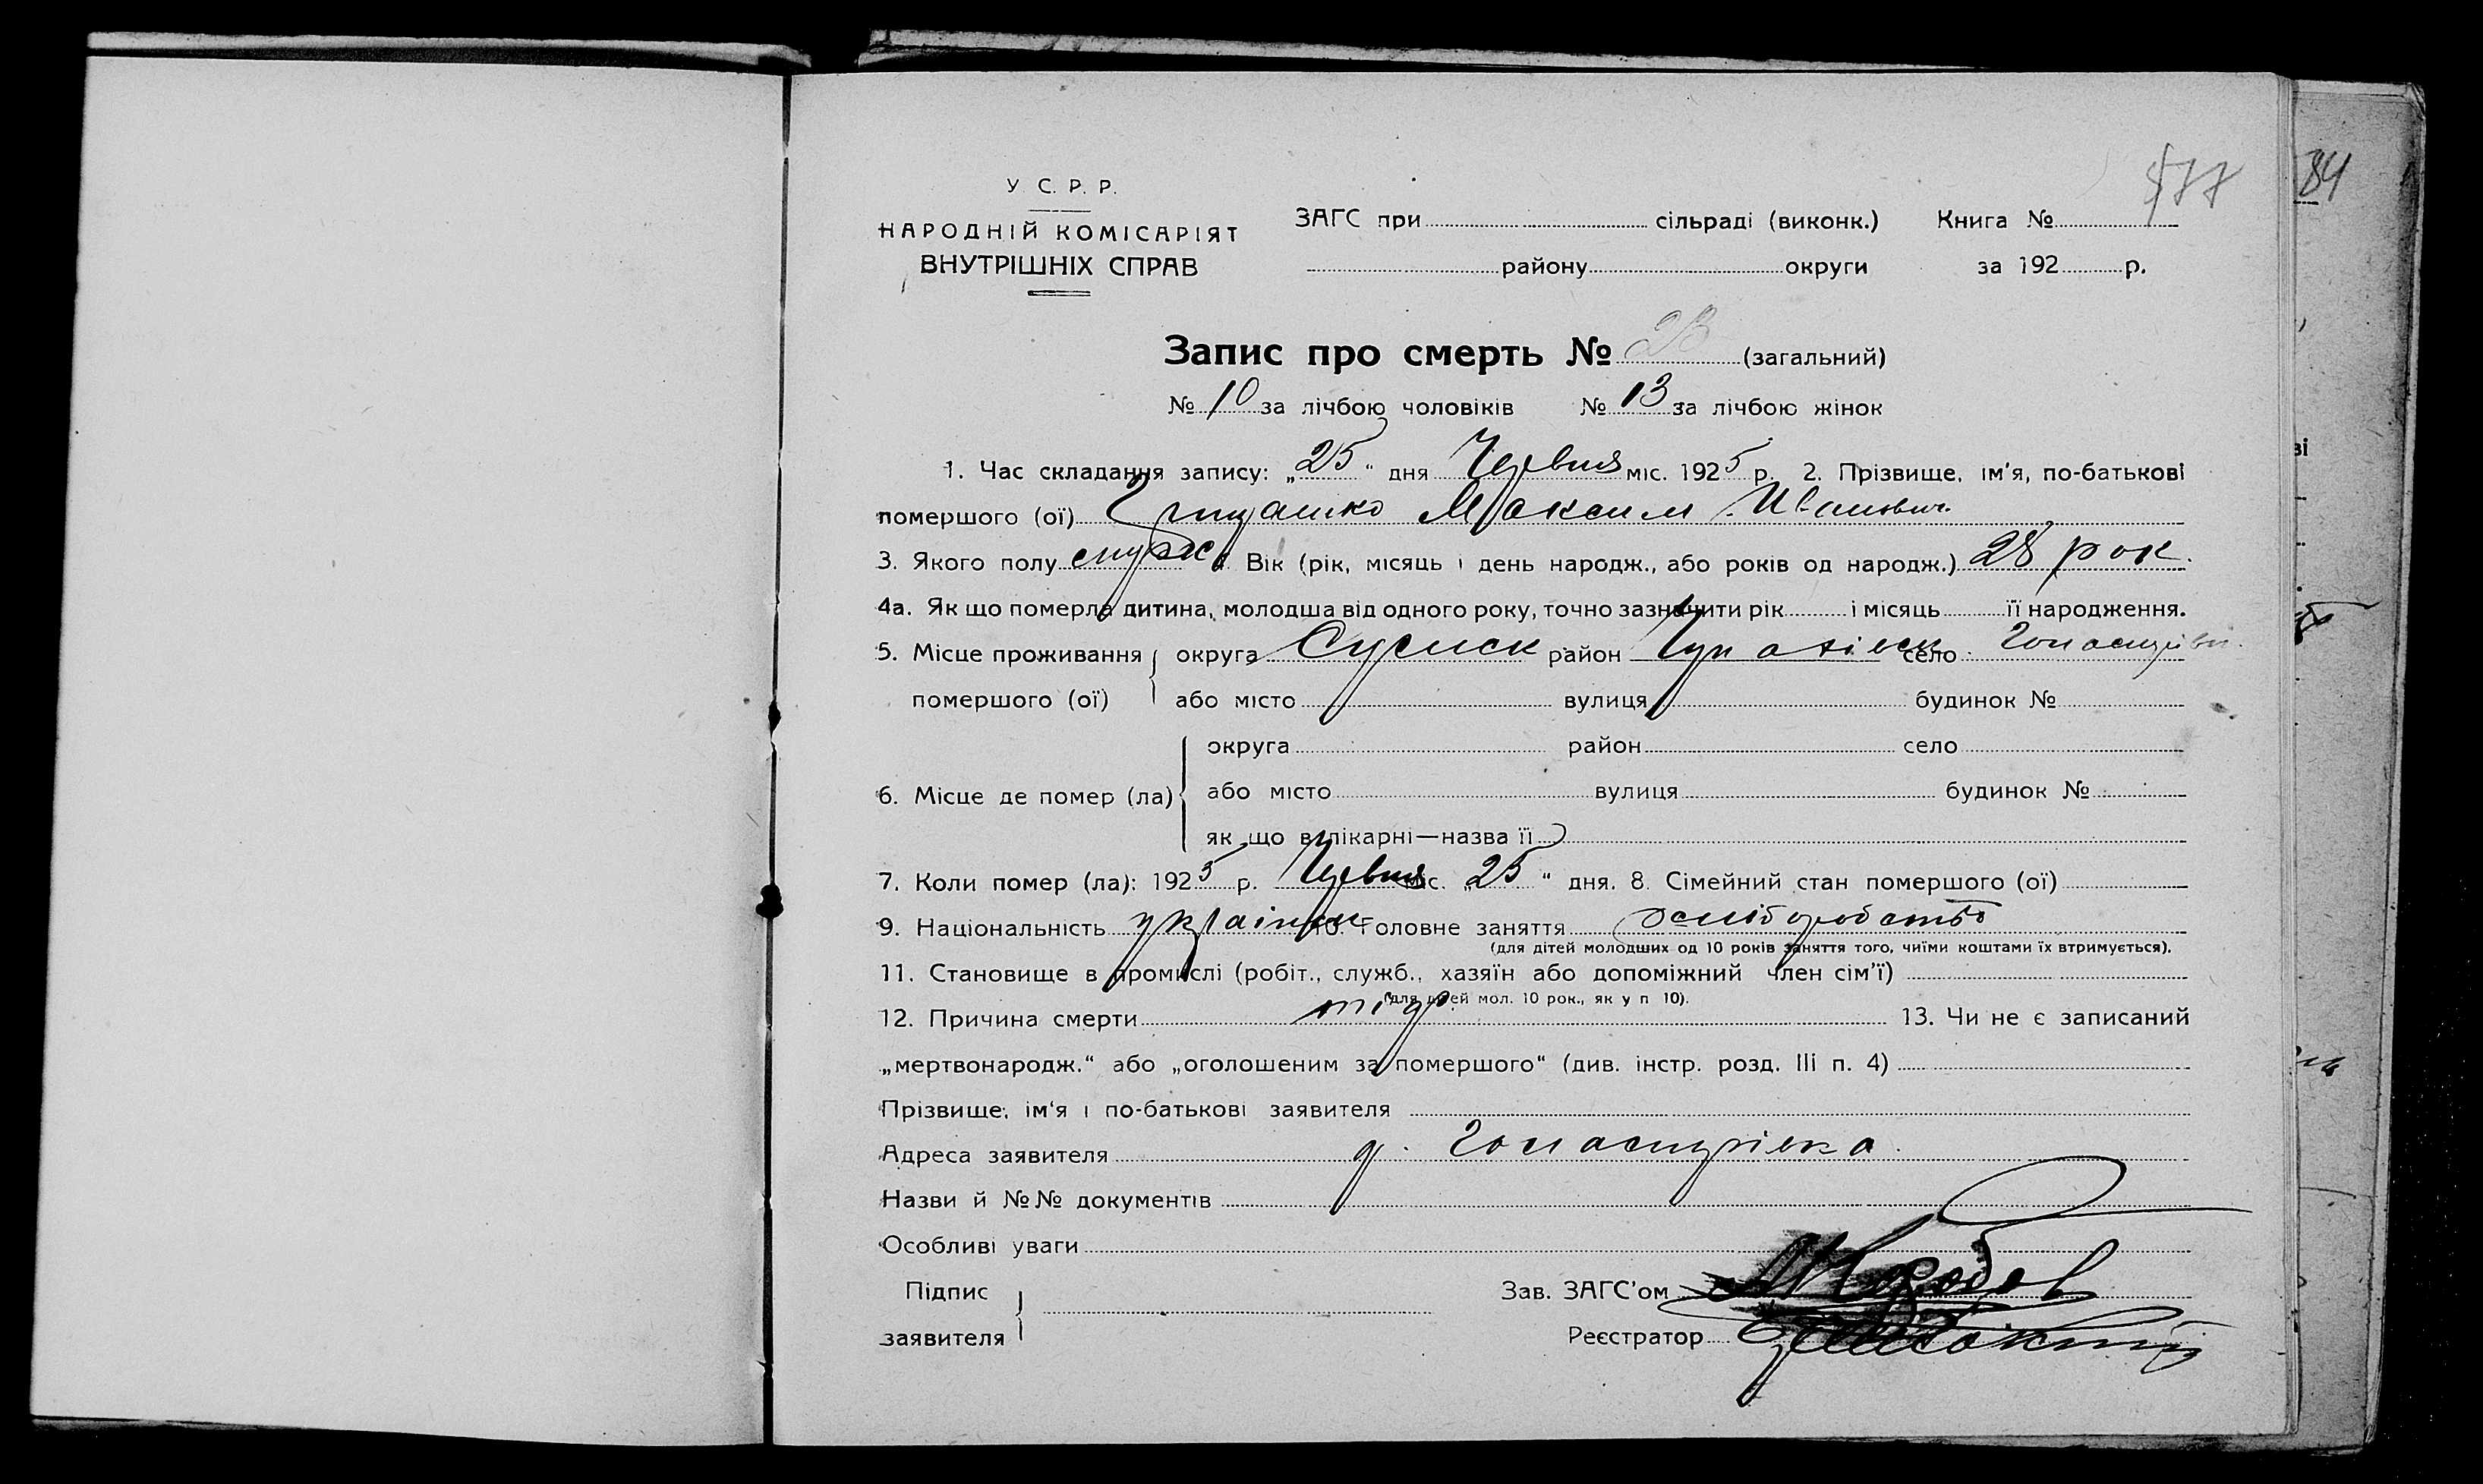 577
84
У. С. Р. Р.
НАРОДНІЙ КОМІСАРІЯТ
ВНУТРІШНІХ СПРАВ
ЗАГС при сільраді (виконк.) Книга №
району округи за 192 р.
Запис про смерть № 23 (загальний)
№ 10 за лічбою чоловіків № 13 за лічбою жінок
1. Час складання запису: „25“ дня Червня міс. 1925 р. 2. Прізвище, ім'я, по-батькові
помершого (ої) Грицашко Максим Иванович
3. Якого полу муж 4. Вік (рік, місяць і день народж., або років од народж.) 28 рок.
4а. Як що померла дитина, молодша від одного року, точно зазначити рік і місяць її народження.
5. Місце проживання округа Сумск район село
помершого (ої) або місто вулиця будинок №
округа район село
6. Місце де помер (ла) або місто вулиця будинок №
як що в лікарні—назва її
7. Коли помер (ла): 1925 р. Червня міс. „25“ дня. 8. Сімейний стан помершого (ої)
9. Національність україн 10. Головне заняття
(для дітей молодших од 10 років заняття того, чиїми коштами їх втримується).
11. Становище в промислі (робіт., служб., хазяїн або допоміжний член сім'ї)
(для дітей мол. 10 рок., як у п 10).
12. Причина смерти 13. Чи не є записаний
„мертвонародж.“ або „оголошеним за помершого“ (див. інстр. розд. III п. 4)
Прізвище, ім'я і по-батькові заявителя
Адреса заявителя
Назви й №№ документів
Особливі уваги
Підпис Зав. ЗАГС'ом
заявителя Реєстратор